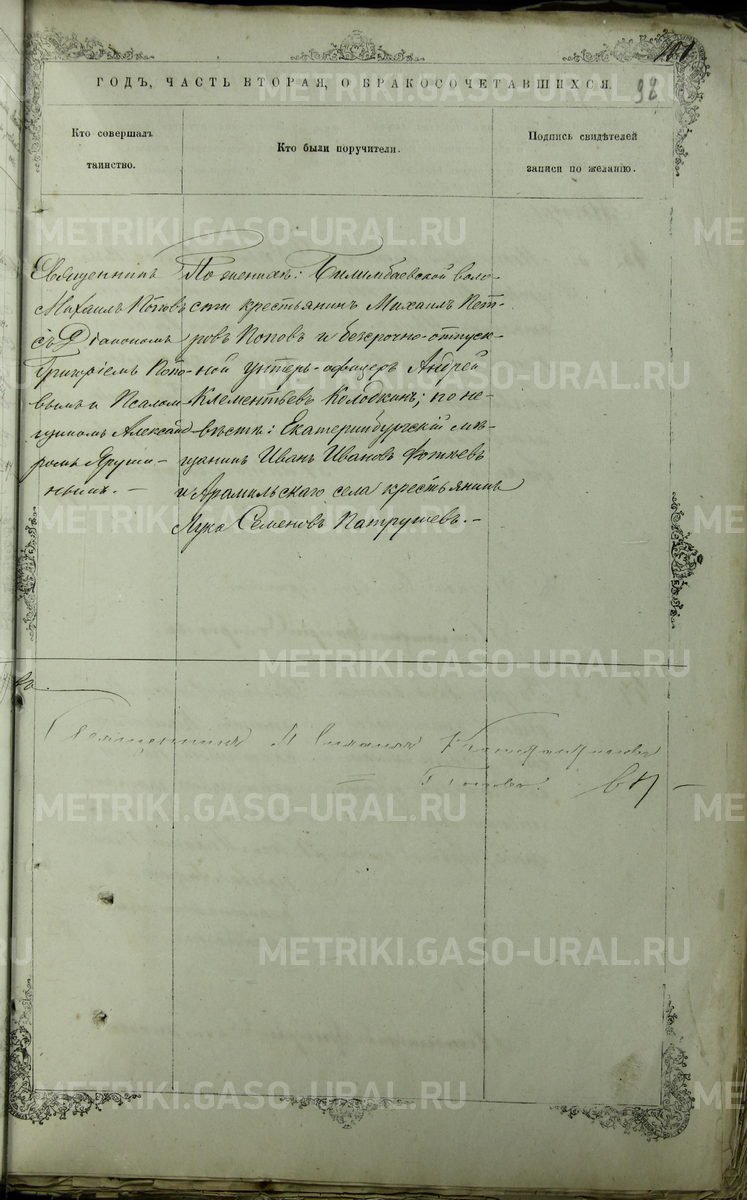 101
ГОДЪ, ЧАСТЬ ВТОРАЯ, О БРАКОСОЧЕТАВШИХСЯ.
98
Кто совершалъ
таинство.
Кто были поручители.
Подпись свидѣтелей
записи по желанію.
Священникъ
Михаилъ Поповъ
съ Діакономъ
Григоріемъ Попо-
вымъ и Псалом-
щикомъ Александ-
ромъ Яруши-
нымъ. –
По женихѣ: Билимбаевской воло-
сти крестьянинъ Михаилъ Пет-
ровъ Поповъ и безсрочно-отпуск-
ной унтеръ-офицеръ Андрей
Клементьевъ Колобкинъ; по не-
вѣстѣ: Екатеринбургскій мѣ-
щанинъ Иванъ Ивановъ
и Арамильскаго села крестьянинъ
Лука Семеновъ Патрушевъ. –
Священникъ
METRIKI.GASO-URAL.RU